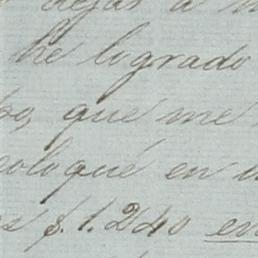 dejar a
he logrado
que me
coloqué en
$.1.240 en